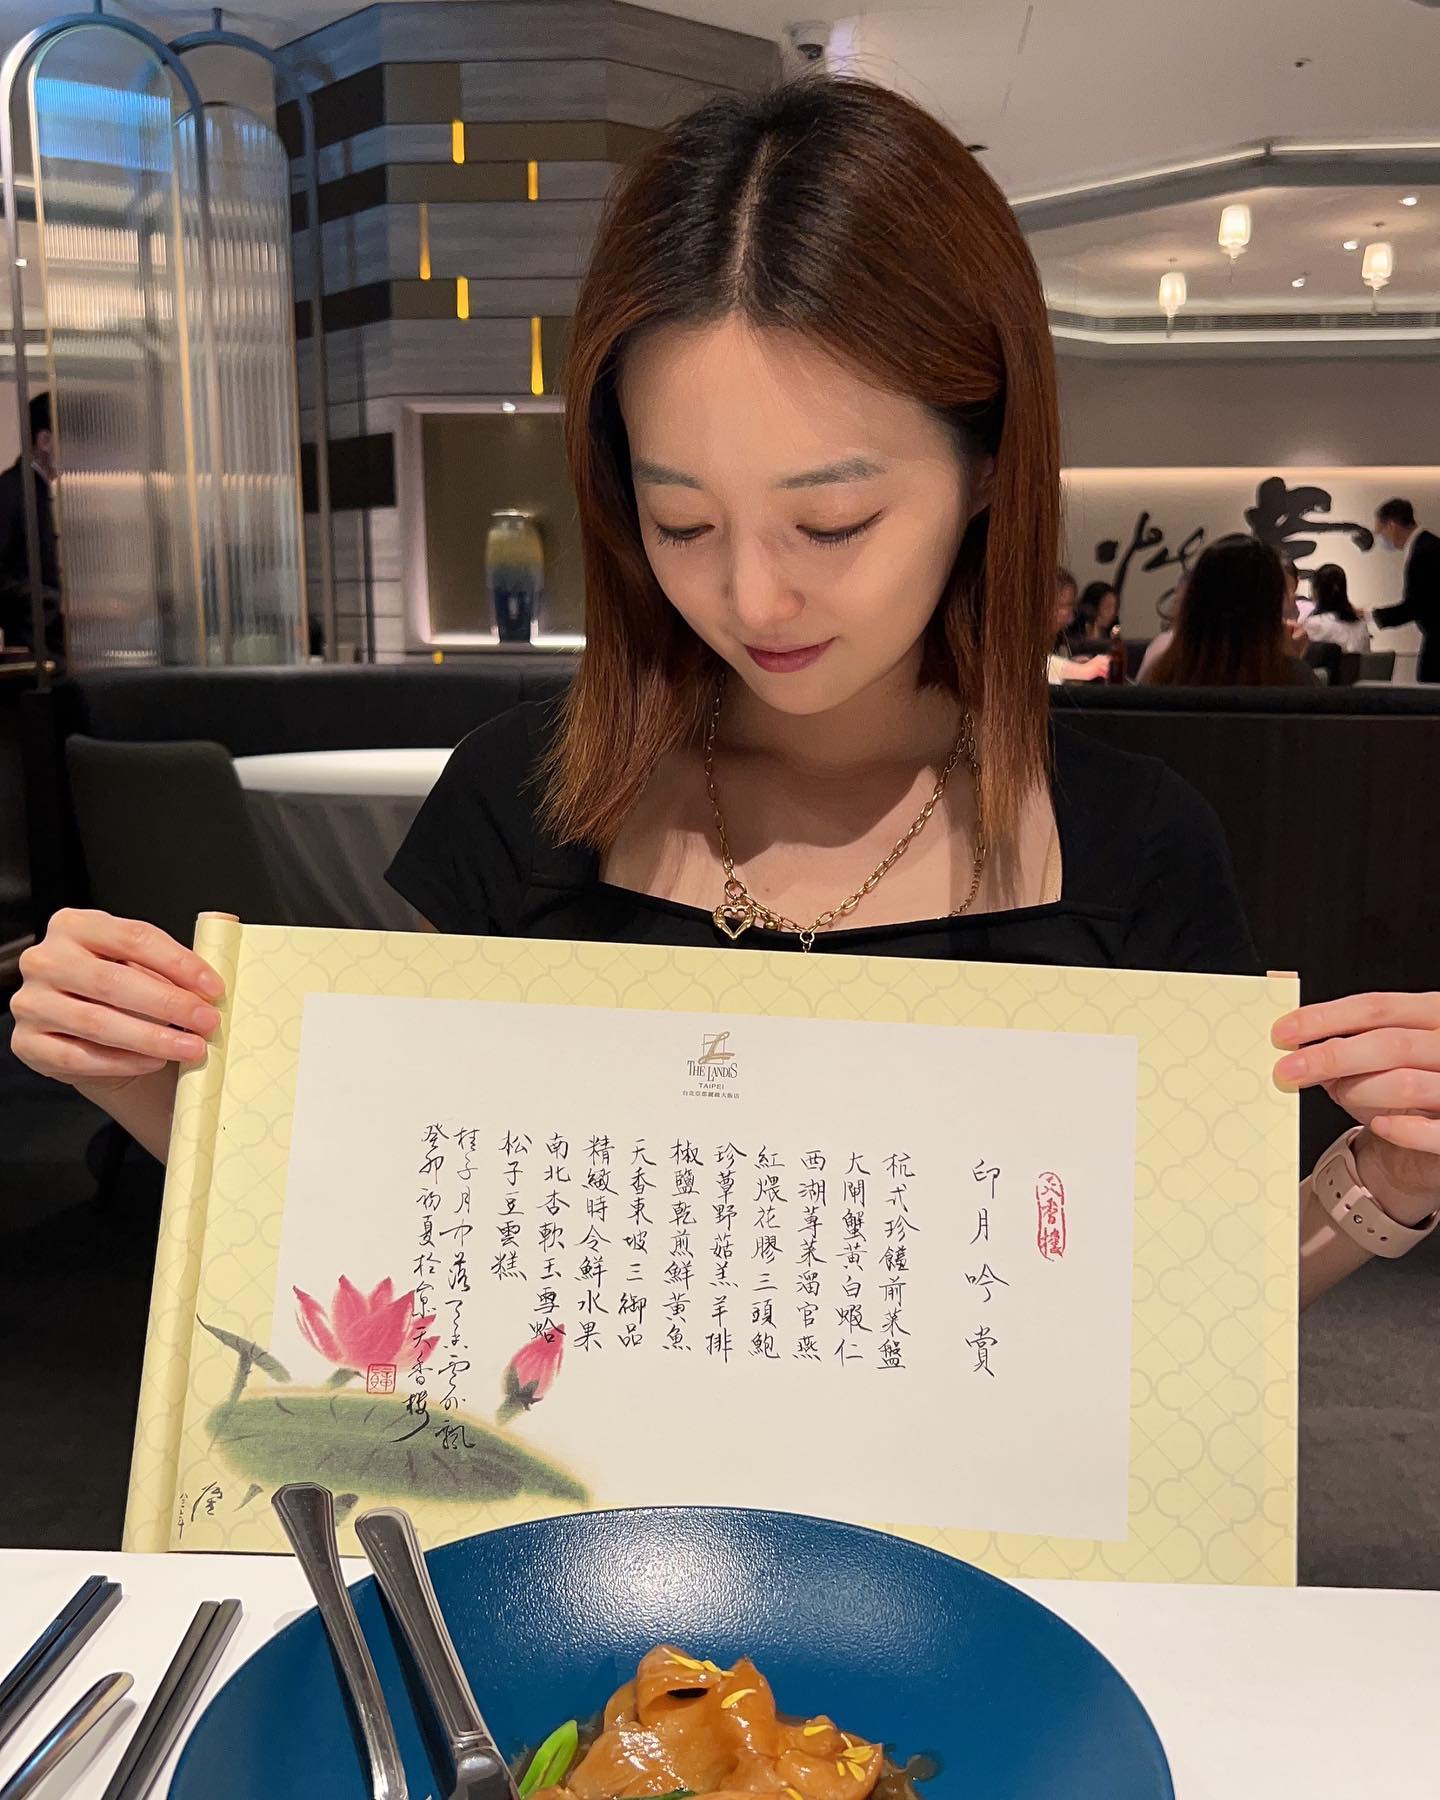 THE LANDIS
TAIPEI
台北亞都麗緻大飯店
天香樓
印月吟賞
杭式珍饈前菜盤
大閘蟹黃白蝦仁
西湖蓴菜溜官燕
紅煨花膠三頭鮑
珍蕈野菇羔羊排
椒鹽乾煎鮮黃魚
天香東坡三御品
精緻時令鮮水果
南北杏軟玉雪蛤
松子豆雲糕
桂子月中落 天香雲外飄
癸卯初夏於 天香樓